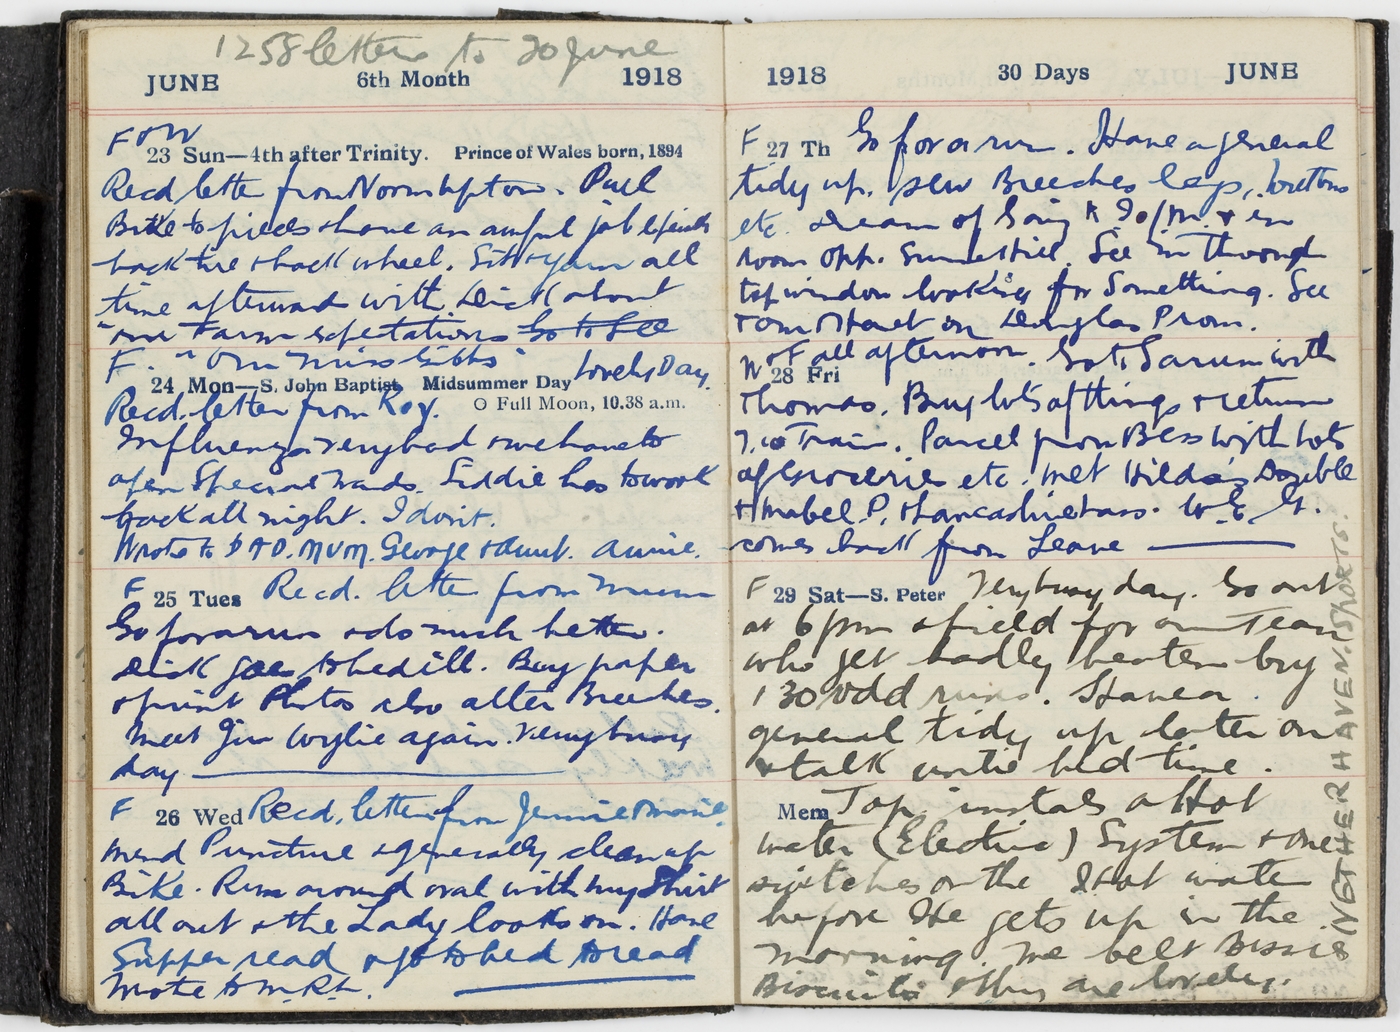 1258 letters to 20 June
JUNE 6th Month 1918
F or W
23 Sun—4th after Trinity. Prince of Wales born, 1894
Recd letter from Northampton. Pull
Bike to pieces & have an awful job
back tire & back wheel. Sit & yarn all
time afterward with Dick about
"our Farm expectations Go to see
F. "Our Miss Gibbs" Lovely Day.
24 Mon—S. John Baptist. Midsummer Day
Recd. letter from Roy. O Full Moon, 10.38 a.m.
Influenza very bad & we have to
open Special Wards. Siddie has to work
back all night. I don't.
Wrote to DAD. MUM. George & Aunt. Annie.
F
25 Tues Recd. letter from Mum
Go for a run & do much better.
Dick goes to bed ill. Buy paper
& print Photos also alter Breeches.
Meet Jim Wylie again. Very busy
day
F
26 Wed Recd. letter from Jennie & Marie.
Mend Puncture & generally clean up
Bike. Run around oval with my Shirt
all out & the Lady looks on. Have
Supper read & go to bed & read
Wrote to
1918 30 Days JUNE
F 27 Th Go for a run. Have a general
tidy up. sew Breeches legs, buttons
etc. Dream of being & in
room opp. See through
top window looking for Something. See
on Douglas Prom.
W of F all afternoon. Go to Sarum with
28 Fri
Thomas. Buy lots of things & return
Train. Parcel from Bess with lots
of Groceries etc. Met Hilda
& Mabel P. & Lancashire lass. W.E.G.
comes back from Leave
F 29 Sat—S. Peter Very busy day. Go out
at 6 pm & field for our Team
who get badly beaten by
130 odd runs. Have a
general tidy up later on
& talk until bed time.
Mem Tap instals a Hot
water (Electric) System & one
switches on the Hot water
before He gets up in the
morning. We Bessie's
Biscuits & they are lovely.
(NETHERHAVEN. SPORTS.